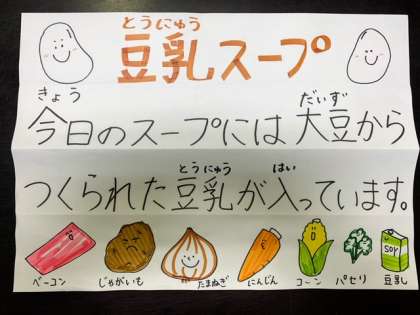 とうにゅう
豆乳スープ
きょう だいず
今日のスープには大豆から
とうにゅう はい
つくられた豆乳が入っています。
SOY
ベーコン じゃがいも たまねぎ にんじん コーン パセリ 豆乳